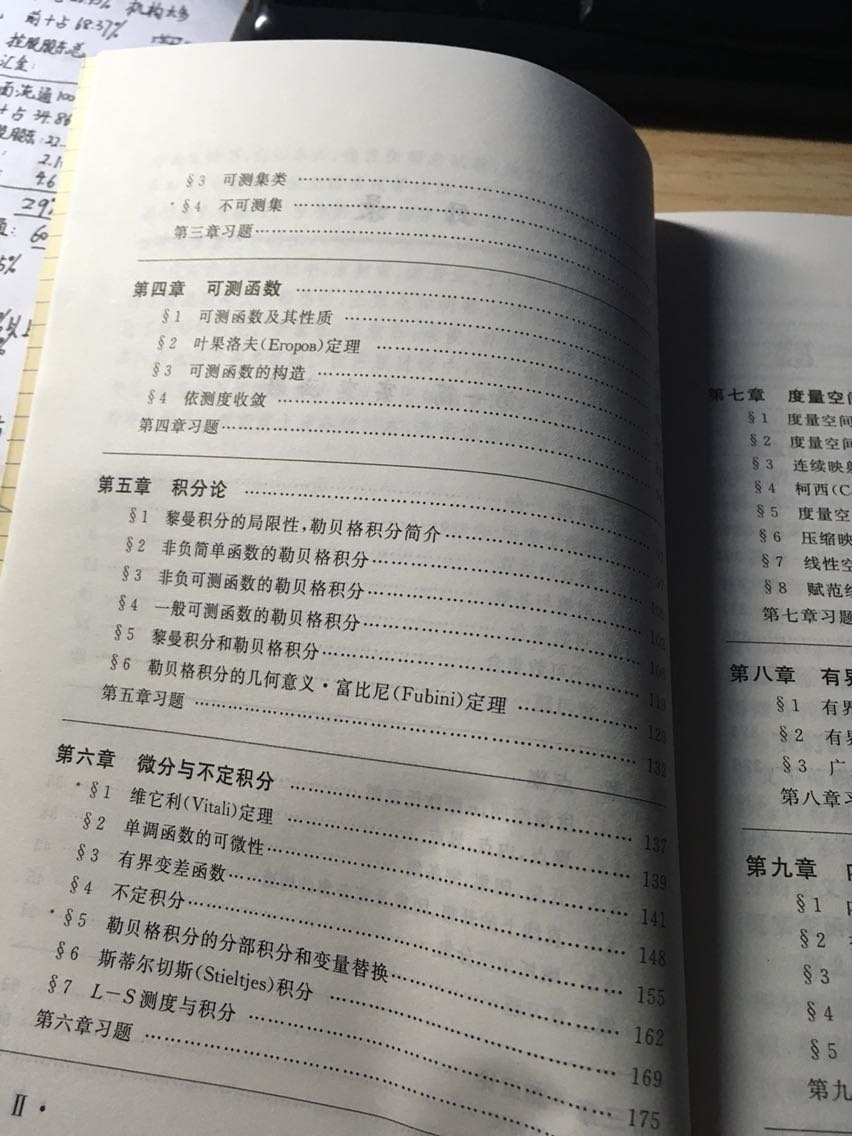 §3 可测集类
*§4 不可测集
第三章习题
第四章 可测函数
§1 可测函数及其性质
§2 叶果洛夫(Егоров)定理
§3 可测函数的构造
§4 依测度收敛
第四章习题
第五章 积分论
§1 黎曼积分的局限性,勒贝格积分简介
§2 非负简单函数的勒贝格积分
§3 非负可测函数的勒贝格积分 102
§4 一般可测函数的勒贝格积分 108
§5 黎曼积分和勒贝格积分 113
§6 勒贝格积分的几何意义·富比尼(Fubini)定理 123
第五章习题 132
第六章 微分与不定积分 137
*§1 维它利(Vitali)定理 139
§2 单调函数的可微性 141
§3 有界变差函数 148
§4 不定积分 155
*§5 勒贝格积分的分部积分和变量替换 162
§6 斯蒂尔切斯(Stieltjes)积分 169
§7 L-S测度与积分 175
第六章习题
Ⅱ ·
第七章 度量空间
§1 度量空间
§2 度量空间
§3 连续映射
§4 柯西(C
§5 度量空
§6 压缩映
§7 线性空
§8 赋范线
第七章习题
第八章 有界
§1 有界
§2 有界
§3 广
第八章习
第九章
§1
§2
§3
§4
§5
第九
机构太多
前十占68.37%
控股股东
汇金:
流通100
占34.86
2.1
4.6
29%
60
5%